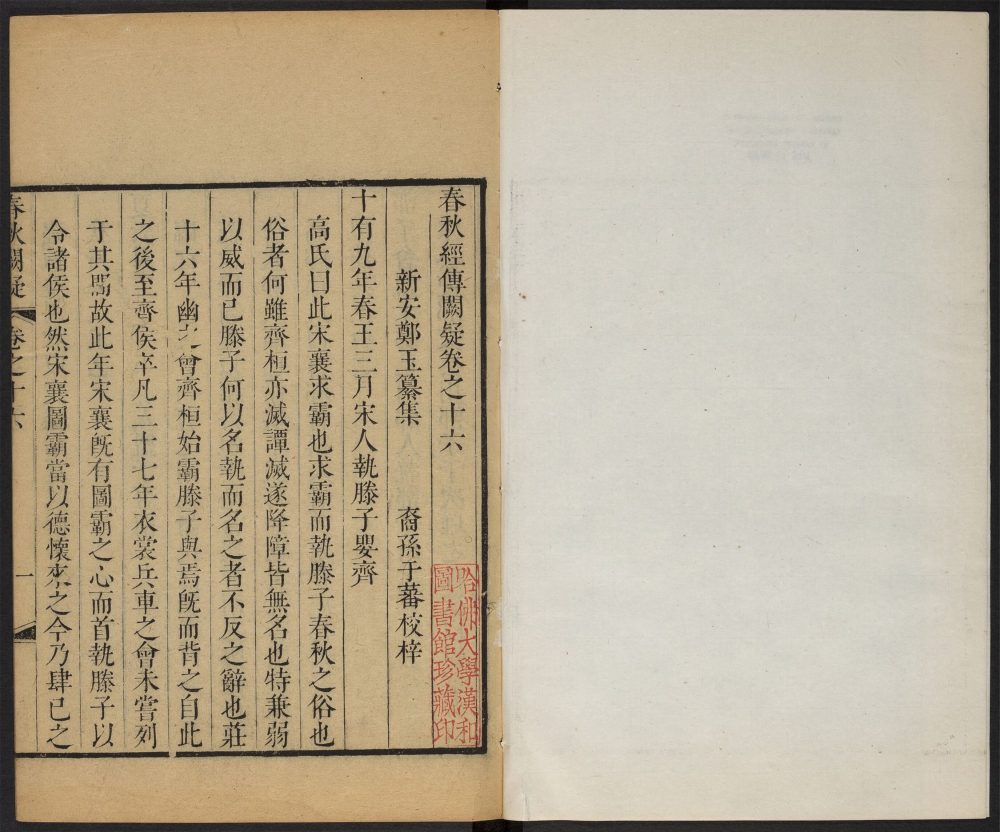 春秋經傳闕疑卷之十六
新安鄭玉纂集 裔孫于蕃校梓
十有九年春王三月宋人執滕子嬰齊
高氏曰此宋襄求霸也求霸而執滕子春秋之俗也
俗者何雖齊桓亦滅譚滅遂降障皆無名也特兼弱
以威而已滕子何以名執而名之者不反之辭也莊
十六年幽之會齊桓始霸滕子與焉旣而背之自此
之後至齊侯卒凡三十七年衣裳兵車之會未嘗列
于其間故此年宋襄旣有圖霸之心而首執滕子以
令諸侯也然宋襄圖霸當以德懷來之今乃肆已之
春秋闕疑 卷之十六 一
哈佛大學漢和
圖書館珍藏印